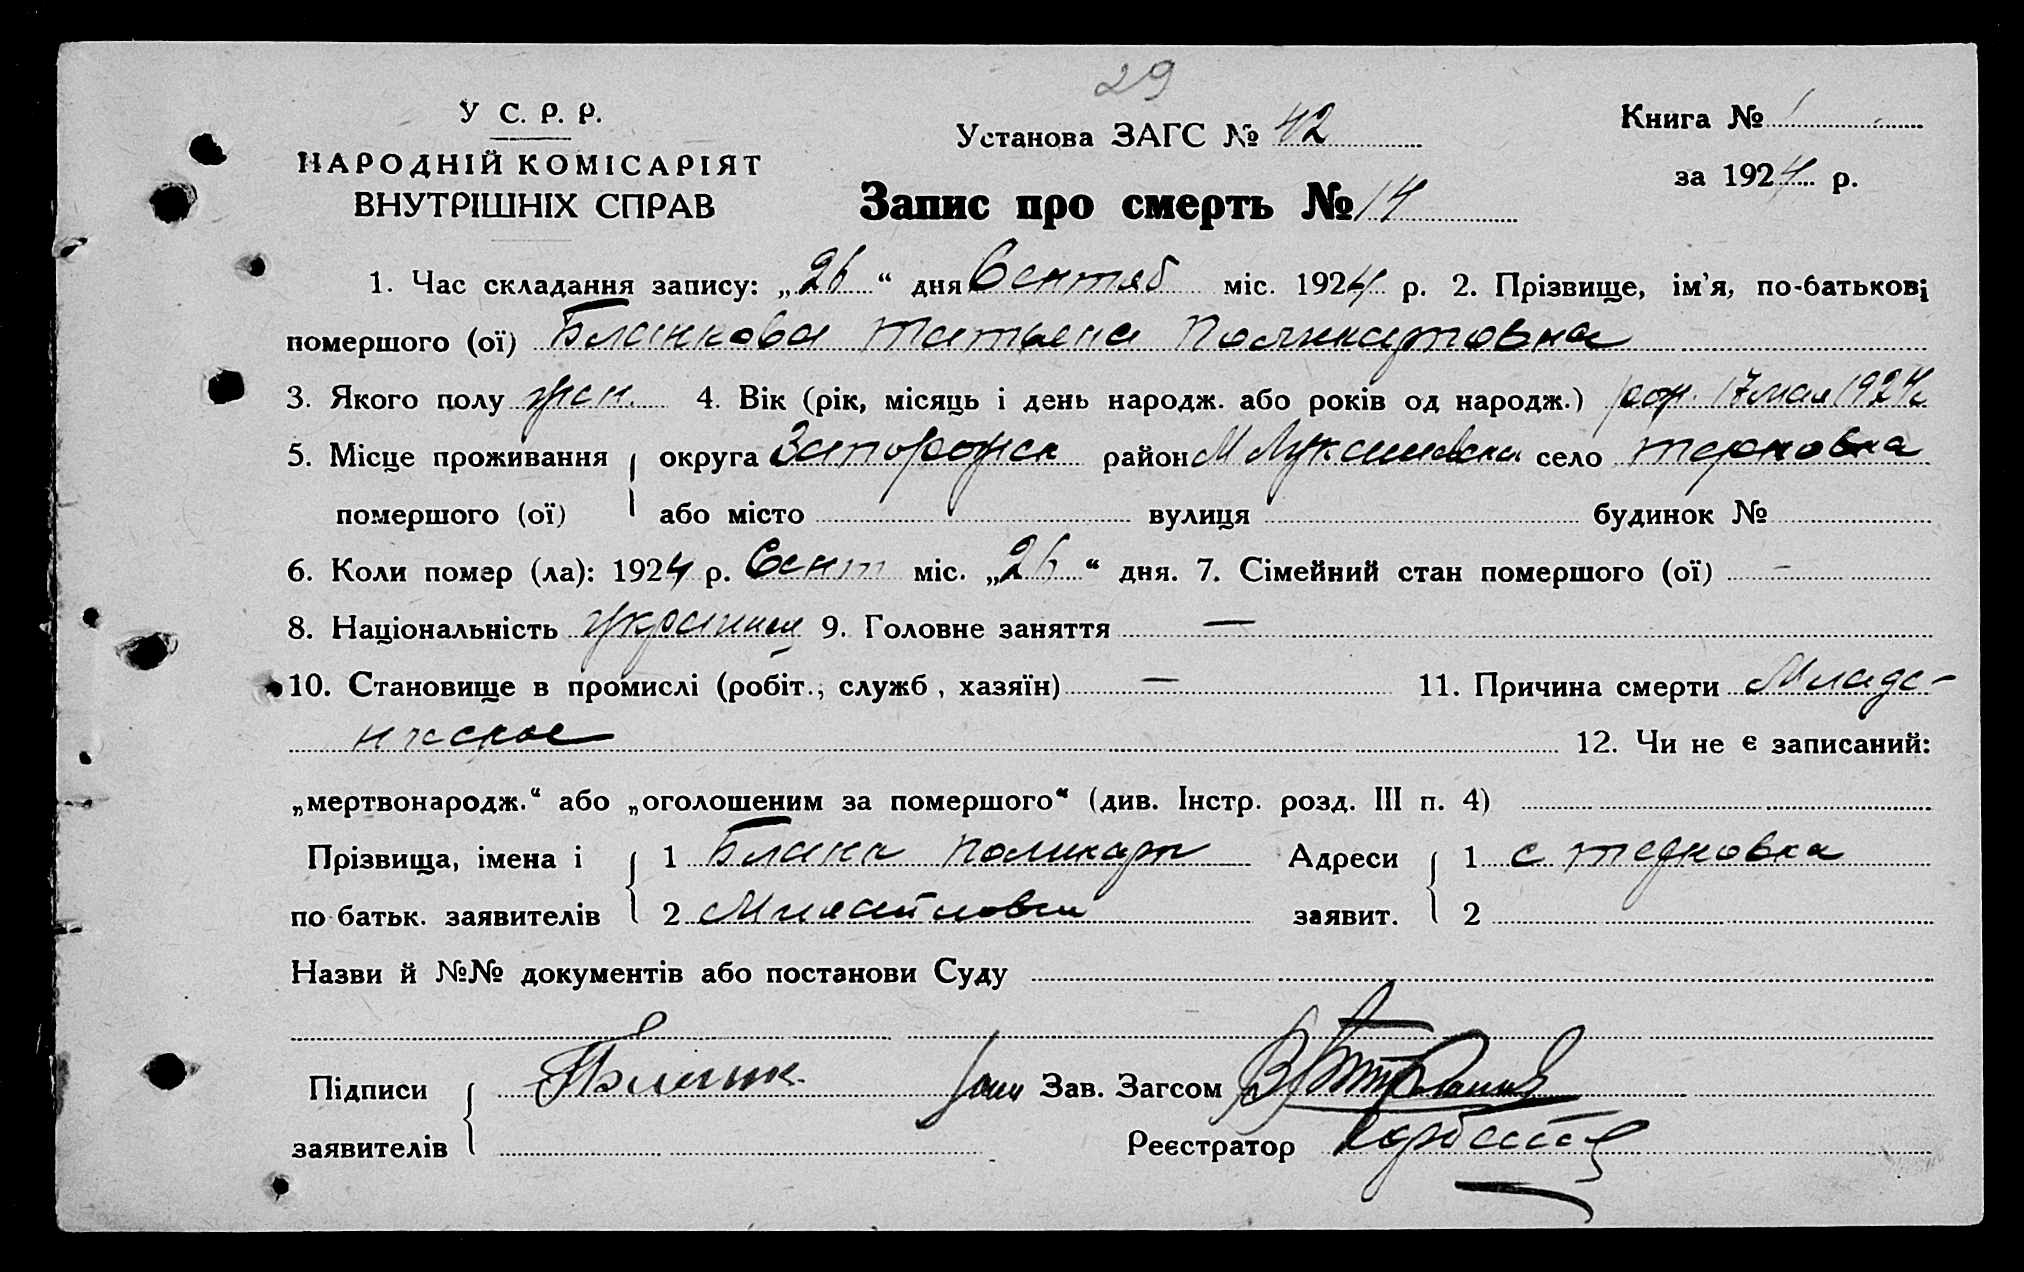 29
У С. Р. Р.
НАРОДНІЙ КОМІСАРІЯТ
ВНУТРІШНІХ СПРАВ
Установа ЗАГС № 42
Книга № 1
за 1924 р.
Запис про смерть № 14
1. Час складання запису: „26“ дня Сентяб міс. 1924 р. 2. Прізвище, ім'я, по-батькові
помершого (ої) Бланкова Татьяна Поликарповна
3. Якого полу жен. 4. Вік (рік, місяць і день народж. або років од народж.) рож. 17 мая 1924
5. Місце проживання округа Запорожск район М Лукашевски село Терновка
помершого (ої) або місто вулиця будинок №
6. Коли помер (ла): 1924 р. Сент міс. „26“ дня. 7. Сімейний стан помершого (ої) –
8. Національність украинец 9. Головне заняття —
10. Становище в промислі (робіт., служб, хазяїн) — 11. Причина смерти Младе-
нческое 12. Чи не є записаний:
„мертвонародж.“ або „оголошеним за помершого“ (див. Інстр. розд. III п. 4)
Прізвища, імена і 1 Бланк Поликарп Адреси 1 с Терновка
по батьк. заявителів 2 Михайлович заявит. 2
Назви й №№ документів або постанови Суду
Підписи Зав. Загсом
заявителів Реєстратор